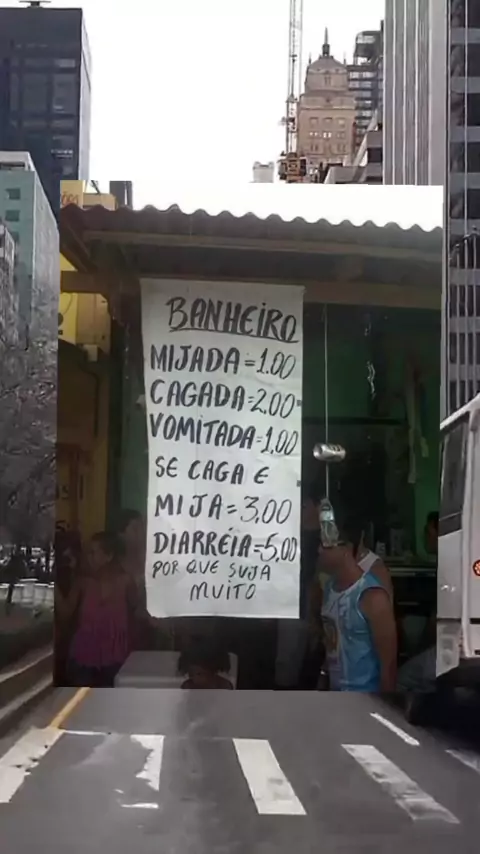 BANHEIRO
MIJADA=1.00
CAGADA=2.00
VOMITADA=1,00
SE CAGA E
MIJA=3,00
DIARRÉIA=5,00
POR QUE SUJA
MUITO